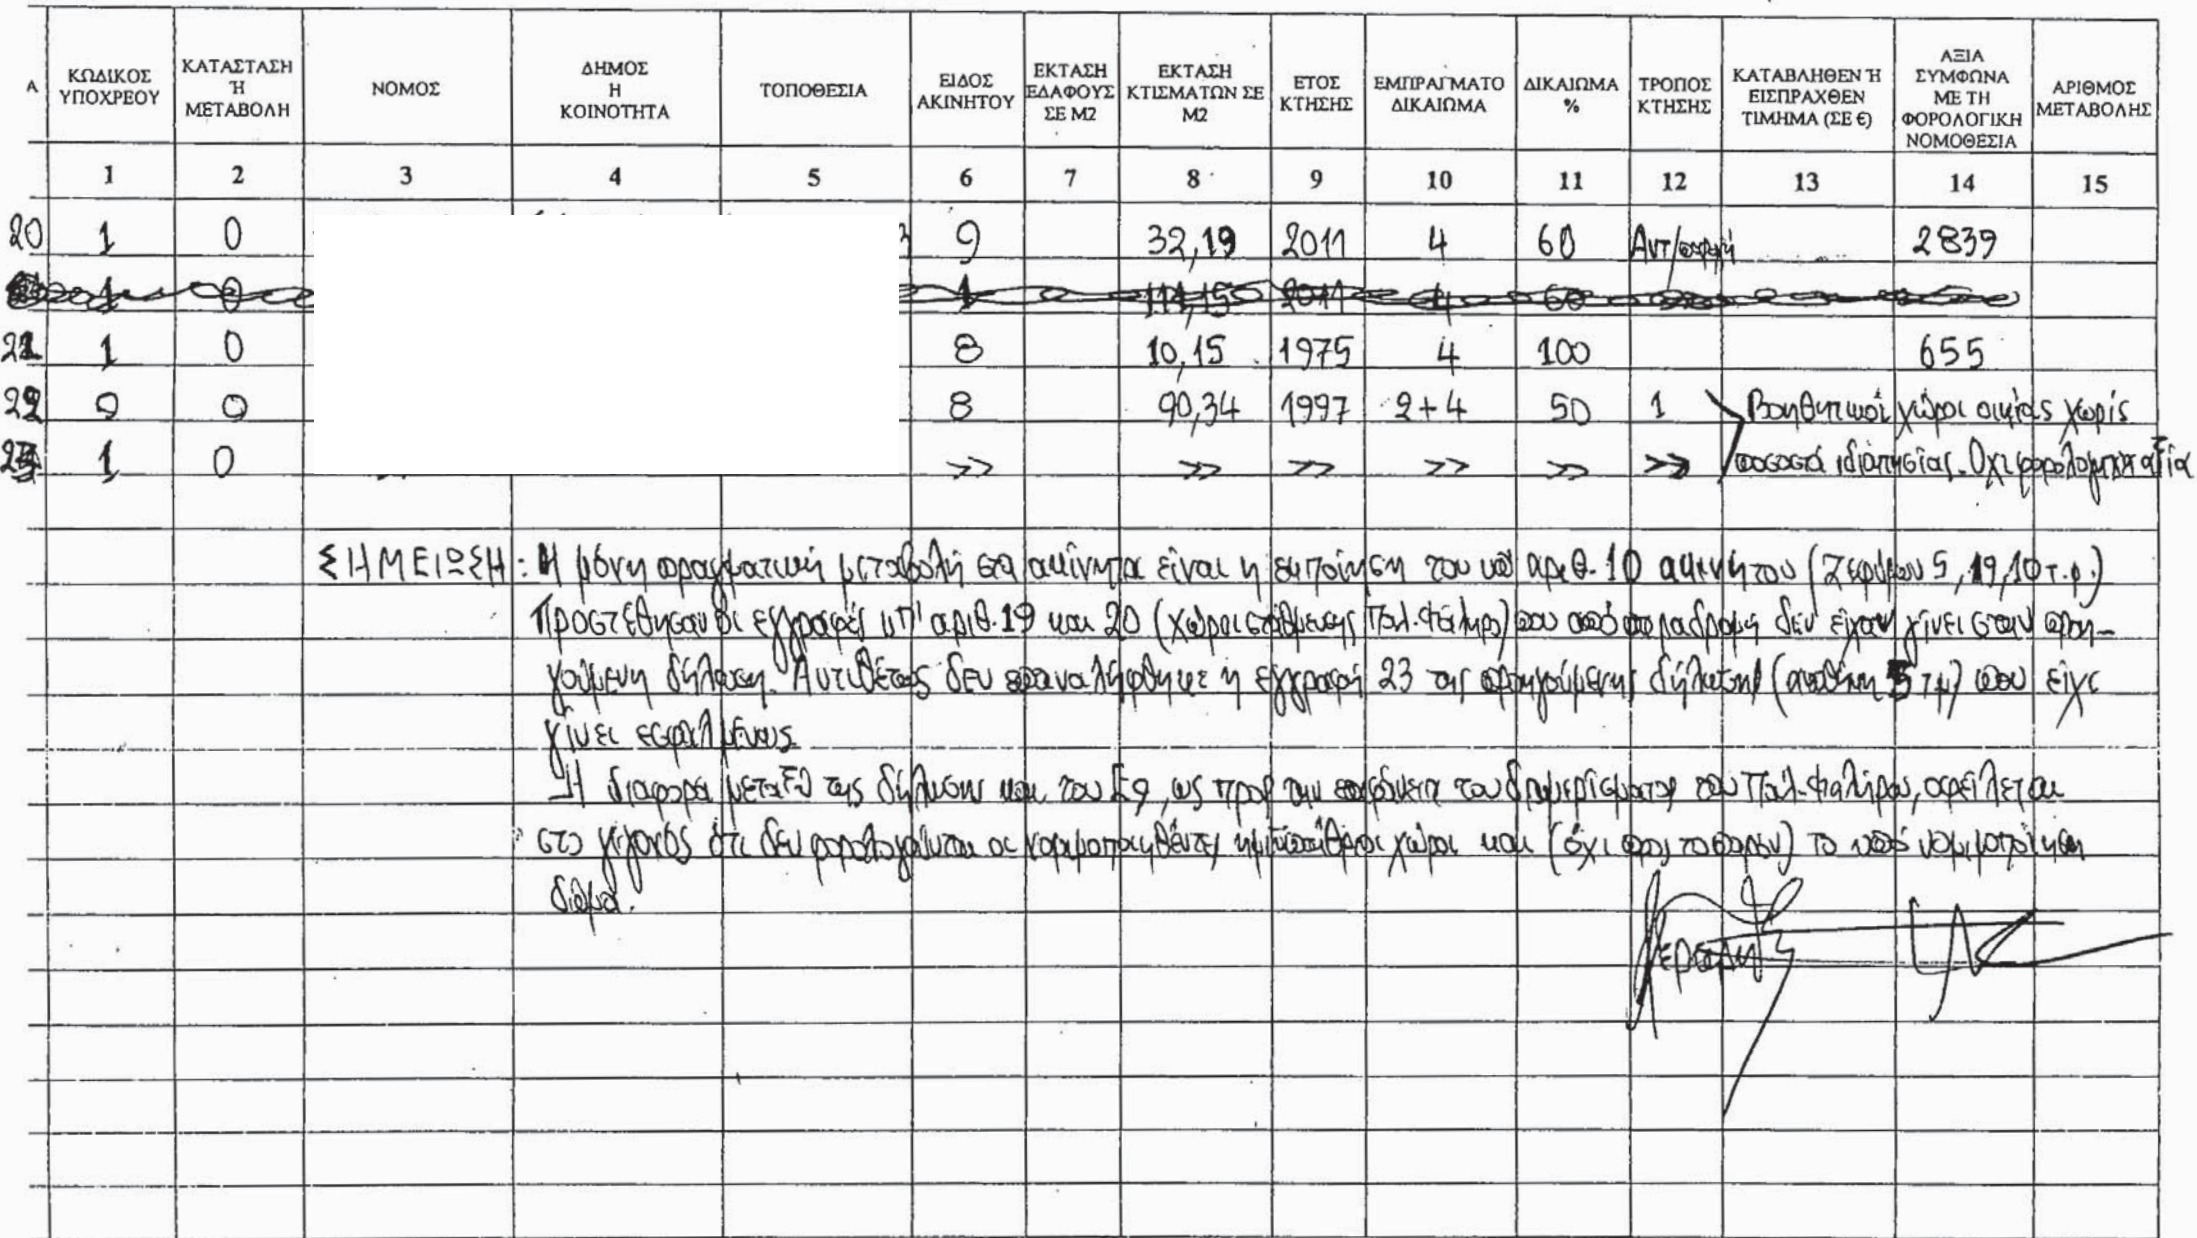 Α ΚΩΔΙΚΟΣ ΥΠΟΧΡΕΟΥ ΚΑΤΑΣΤΑΣΗ Ή ΜΕΤΑΒΟΛΗ ΝΟΜΟΣ ΔΗΜΟΣ Η ΚΟΙΝΟΤΗΤΑ ΤΟΠΟΘΕΣΙΑ ΕΙΔΟΣ ΑΚΙΝΗΤΟΥ ΕΚΤΑΣΗ ΕΔΑΦΟΥΣ ΣΕ Μ2 ΕΚΤΑΣΗ ΚΤΙΣΜΑΤΩΝ ΣΕ Μ2 ΕΤΟΣ ΚΤΗΣΗΣ ΕΜΠΡΑΓΜΑΤΟ ΔΙΚΑΙΩΜΑ ΔΙΚΑΙΩΜΑ % ΤΡΟΠΟΣ ΚΤΗΣΗΣ ΚΑΤΑΒΛΗΘΕΝ Ή ΕΙΣΠΡΑΧΘΕΝ ΤΙΜΗΜΑ (ΣΕ €) ΑΞΙΑ ΣΥΜΦΩΝΑ ΜΕ ΤΗ ΦΟΡΟΛΟΓΙΚΗ ΝΟΜΟΘΕΣΙΑ ΑΡΙΘΜΟΣ ΜΕΤΑΒΟΛΗΣ
1 2 3 4 5 6 7 8 9 10 11 12 13 14 15
20 1 0 9 32,19 2011 4 60 2839
1 0 1 114,15 2011 4 60
21 1 0 8 10,15 1975 4 100 655
22 0 0 8 90,34 1997 2+4 50 1 Βοηθητικοί χώροι οικίας χωρίς
23 1 0 >> >> >> >> >> >> ποσοστά ιδιοκτησίας. Όχι φορολογική αξία
ΣΗΜΕΙΩΣΗ: Η μόνη πραγματική μεταβολή στα ακίνητα είναι η εκποίηση του υπ' αριθ. 10 ακινήτου (Ζεφύρου 5, 19,10 τ.μ.)
Προστέθησαν οι εγγραφές υπ' αριθ. 19 και 20 (χώροι στάθμευσης Παλ. Φάληρο) που από παραδρομή δεν είχαν γίνει στην προη-
γούμενη δήλωση. Αντιθέτως δεν επαναλήφθηκε η εγγραφή 23 της προηγούμενης δήλωσης (αποθήκη 5 τμ) που είχε
γίνει εσφαλμένως.
Η διαφορά μεταξύ της δήλωσης και του Ε9, ως προς την επιφάνεια του διαμερίσματος του Παλ. Φαλήρου, οφείλεται
στο γεγονός ότι δεν φορολογούνται οι νομιμοποιηθέντες ημιυπαίθριοι χώροι και (όχι προς το παρόν) το υπό νομιμοποίηση
δώμα.